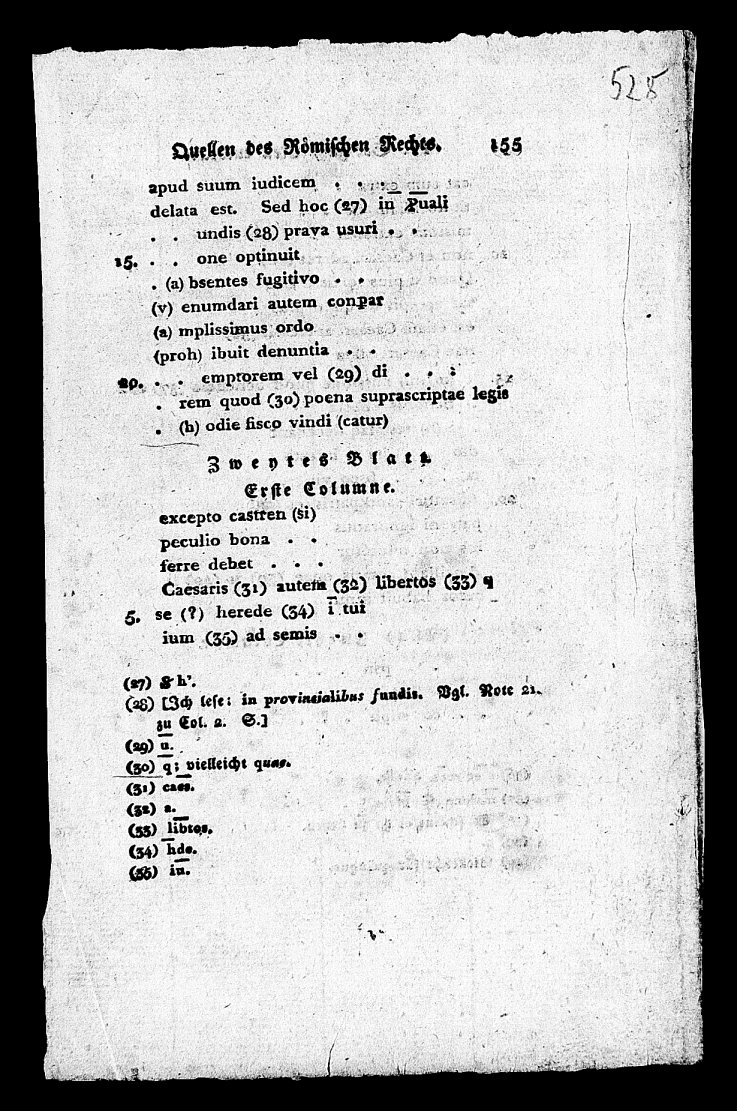 528
Quellen des Römischen Rechts. 155
apud suum iudicem . . . .
delata est. Sed hoc (27) in̅ P̅uali
. . undis (28) prava usuri . .
15. . . one optinuit
. (a) bsentes fugitivo . .
(v) enumdari autem conpar
(a) mplissimus ordo
(proh) ibuit denuntia . . .
20. . . emptorem vel (29) di . . :
. rem quod (30) poena suprascriptae legis
. (h) odie fisco vindi (catur)
Zweytes Blatt.
Erste Columne.
excepto castren (si)
peculio bona . .
ferre debet . . .
Caesaris (31) autem (32) libertos (33) q
5. se (?) herede (34) i̅ tui
ium (35) ad semis . .
(27) S h'.
(28) [Ich lese: in provincialibus fundis. Vgl. Note 21.
zu Col. 2. S.]
(29) u̅.
(30) q̅; vielleicht quas.
(31) cae̅s.
(32) a̅.
(33) lib̅tos.
(34) h̅de.
(35) in̅.